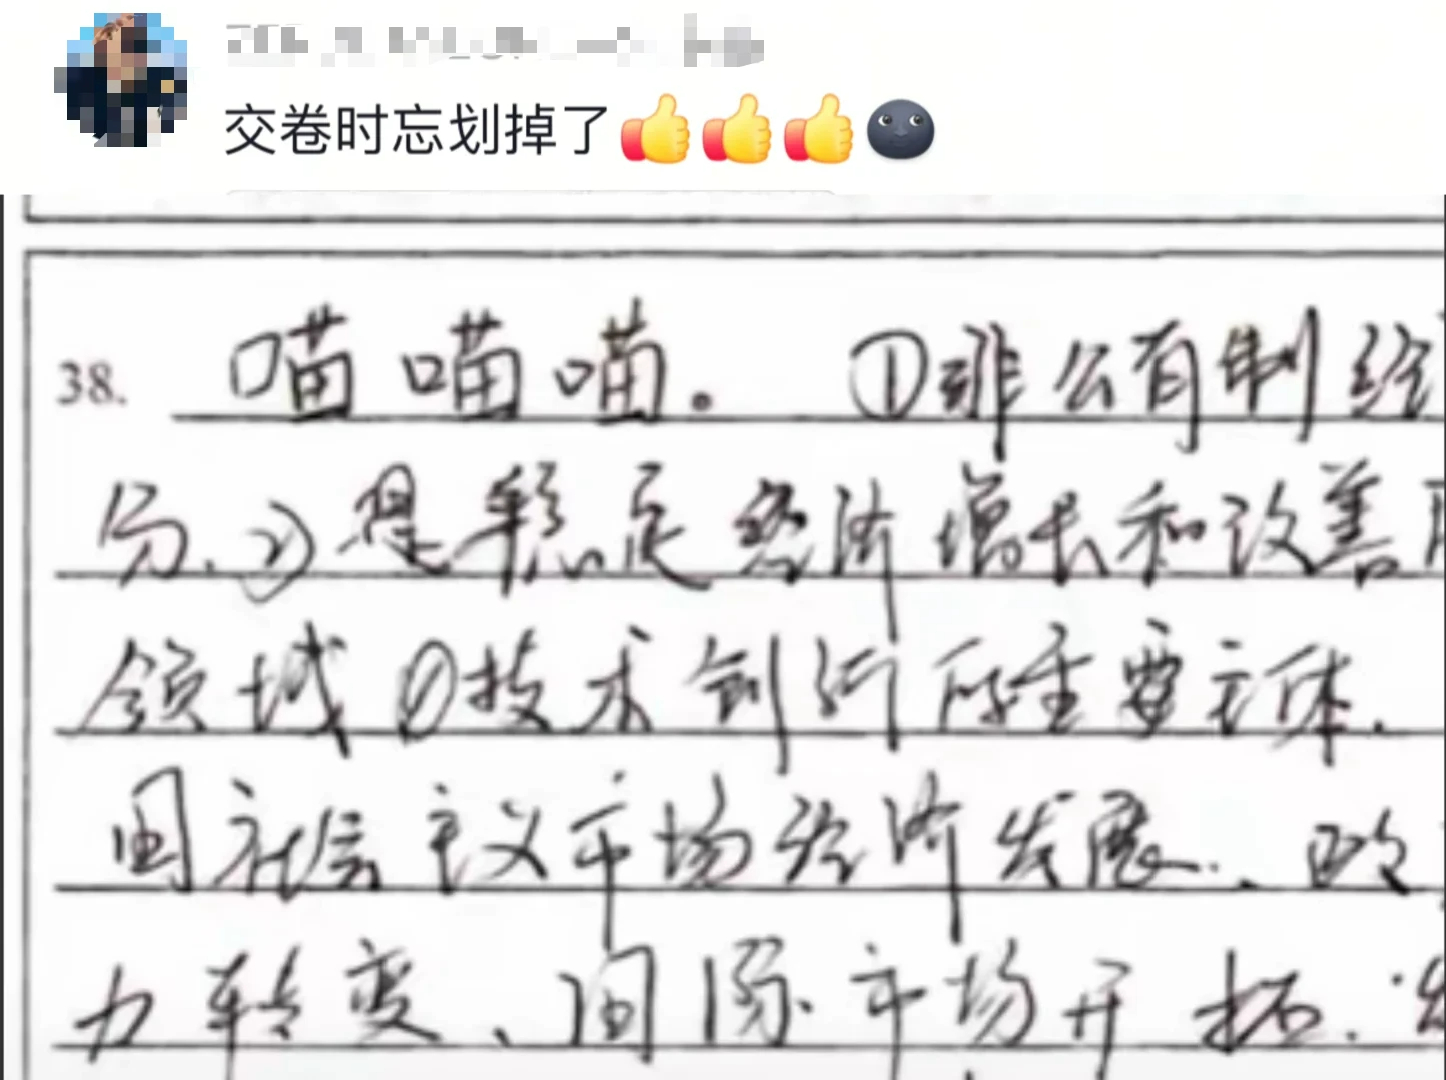 交卷时忘划掉了👍👍👍🌚
38. 喵喵喵。 ①非公有制经
分、②是稳定经济增长和改善
领域 ①技术创新的重要主体.
国社会主义市场经济发展、政
力转变、国际市场开拓.